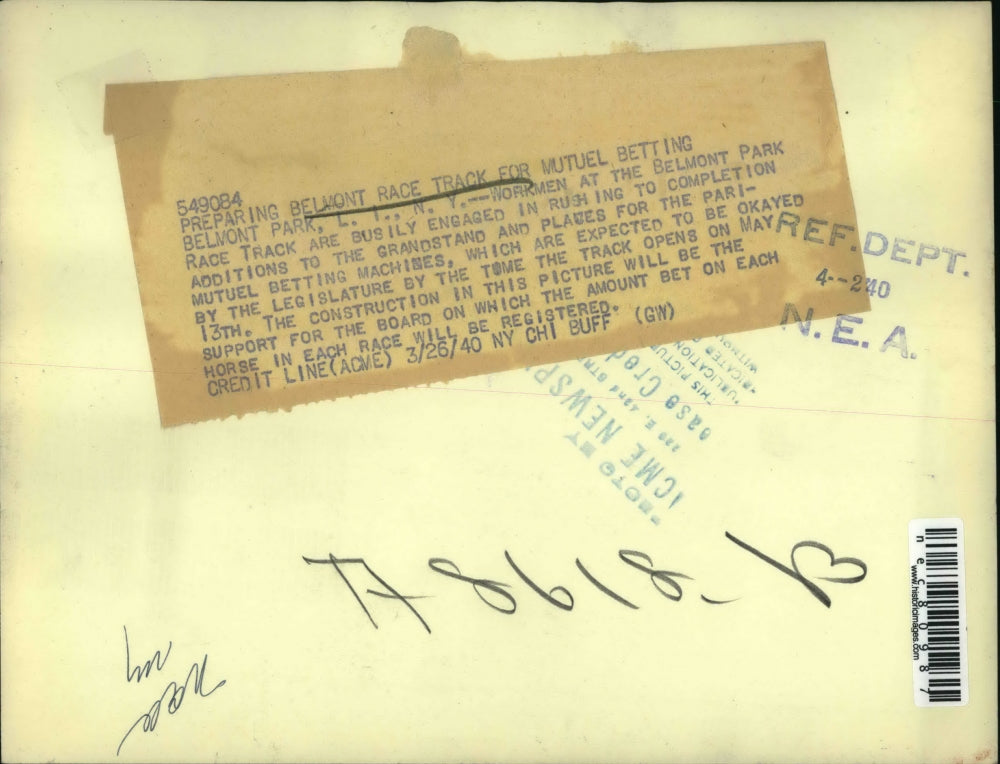 549084
PREPARING BELMONT RACE TRACK FOR MUTUEL BETTING
BELMONT PARK, L. I., N. Y.--WORKMEN AT THE BELMONT PARK
RACE TRACK ARE BUSILY ENGAGED IN RUSHING TO COMPLETION
ADDITIONS TO THE GRANDSTAND AND PLACES FOR THE PARI-
MUTUEL BETTING MACHINES, WHICH ARE EXPECTED TO BE OKAYED
BY THE LEGISLATURE BY THE TOME THE TRACK OPENS ON MAY
13TH. THE CONSTRUCTION IN THIS PICTURE WILL BE THE
SUPPORT FOR THE BOARD ON WHICH THE AMOUNT BET ON EACH
HORSE IN EACH RACE WILL BE REGISTERED.
CREDIT LINE(ACME) 3/26/40 NY CHI BUFF (GW)
REF. DEPT.
4--2 40
N. E. A.
BY
NEWSP
THIS PICTU
A 8618-B
nec80987
www.historicimages.com